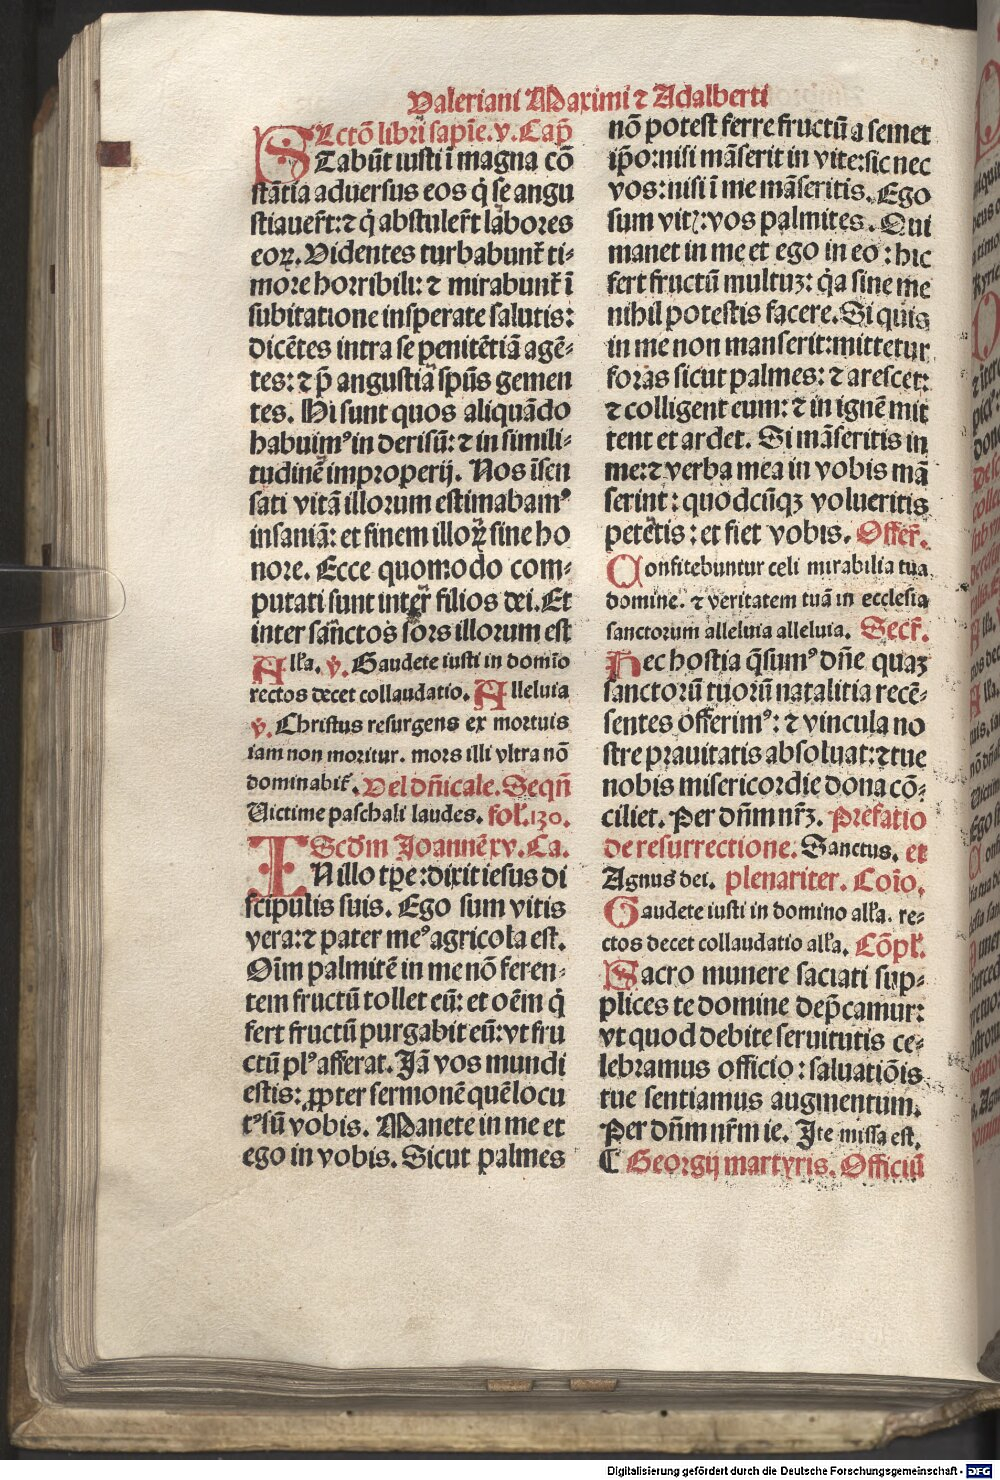 Valeriani Maximi ⁊ Adalberti
Lectō libri sapiē. v. Cap̄
STabūt iusti ī magna cō
stātia aduersus eos q̇ se angu
stiauer̄t: ⁊ q̇ abstuler̄t labores
eoꝝ. Videntes turbabunt᷑ ti-
more horribili: ⁊ mirabunt᷑ ī
subitatione insperate salutis:
dicētes intra se penitētiā agē-
tes: ⁊ p̄ angustiā sp̄us gemen
tes. Hi sunt quos aliquādo
habuimꝰ in derisū: ⁊ in simili-
tudinē improperij. Nos īsen
sati vitā illorum estimabamꝰ
insaniā: et finem illoꝝ sine ho
nore. Ecce quomodo com-
putati sunt inter filios dei. Et
inter sāctos sors illorum est
Alľa. ℣. Gaudete iusti in domīo
rectos decet collaudatio. Alleluia
℣. Christus resurgens ex mortuis
iam non moritur. mors illi vltra nō
dominabit᷑. Vel dn̄icale. Seqn̄
Victime paschali laudes. fol. 130.
Scd̄m Joannē xv. Ca.
IN illo tꝑe: dixit iesus di
scipulis suis. Ego sum vitis
vera: ⁊ pater meꝰ agricola est.
Oīm palmitē in me nō feren-
tem fructū tollet eū: et oēm q̇
fert fructū purgabit eū: vt fru
ctū plꝰ afferat. Jā vos mundi
estis: ꝓpter sermonē quē locu
tꝰ sū vobis. Manete in me et
ego in vobis. Sicut palmes
nō potest ferre fructū a semet
ip̄o: nisi māserit in vite: sic nec
vos: nisi ī me māseritis. Ego
sum vitꝭ: vos palmites. Qui
manet in me et ego in eo: hic
fert fructū multuꝫ: q̇a sine me
nihil potestis facere. Si quis
in me non manserit: mittetur
foras sicut palmes: ⁊ arescet:
⁊ colligent eum: ⁊ in ignē mit
tent et ardet. Si māseritis in
me: ⁊ verba mea in vobis mā
serint: quodcūqꝫ volueritis
petetis: et fiet vobis. Offer̄.
Confitebuntur celi mirabilia tua
domine. ⁊ veritatem tuā in ecclesia
sanctorum alleluia alleluia. Secr̄.
Hec hostia q̄sumꝰ dn̄e quaꝫ
sanctorū tuorū natalitia recē-
sentes offerimꝰ: ⁊ vincula no
stre prauitatis absoluat: ⁊ tue
nobis misericordie dona cō-
ciliet. Per dn̄m nr̄ꝫ. Prefatio
de resurrectione. Sanctus. et
Agnus dei. plenariter. Coīo.
Gaudete iusti in domino alľa. re-
ctos decet collaudatio alľa. Cōpl̄.
Sacro munere saciati sup-
plices te domine dep̄camur:
vt quod debite seruitutis ce-
lebramus officio: saluatiōis
tue sentiamus augmentum.
Per dn̄m nr̄m ie. Ite missa est.
⁋ Georgij martyris. Officiū
Digitalisierung gefördert durch die Deutsche Forschungsgemeinschaft - DFG